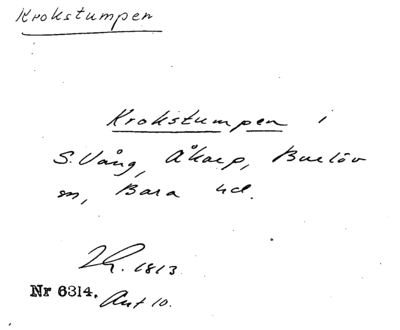 Krokstumpen
Krokstumpen i
S. Vång, Åkarp, Burlöv
sn, Bara hd.
1813
Nr 6314. Akt 10.